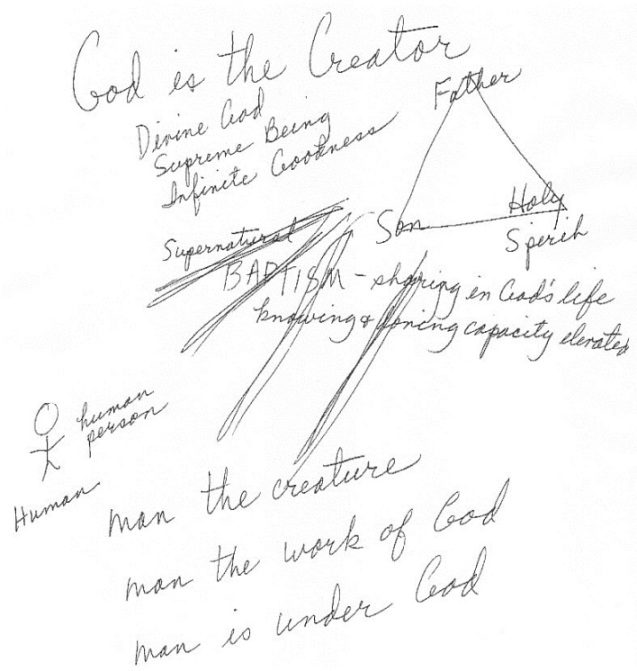 God is the Creator
Divine God
Supreme Being
Infinite Goodness
Father
Son
Holy
Spirit
Supernatural
BAPTISM - sharing in God's life
knowing & loving capacity elevated
human
person
Human
man the creature
man the work of God
man is under God